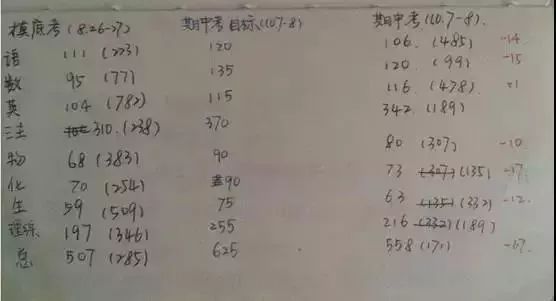 摸底考 (8.26-27) 期中考 目标 (10.7-8) 期中考 (10.7-8).
语 111 (223) 120 106. (485) -14
数 95 (77) 135 120. (99) -15
英 104 (782) 115 116 (478) +1
三主 310. (238) 370 342 (189)
物 68 (383) 90 80 (307) -10
化 70 (254) 90 73 (307) (135) -17
生 59 (509) 75 63 (135) (332) -12
理综 197 (346) 255 216 (332) (189)
总 507 (285) 625 558 (171) -67